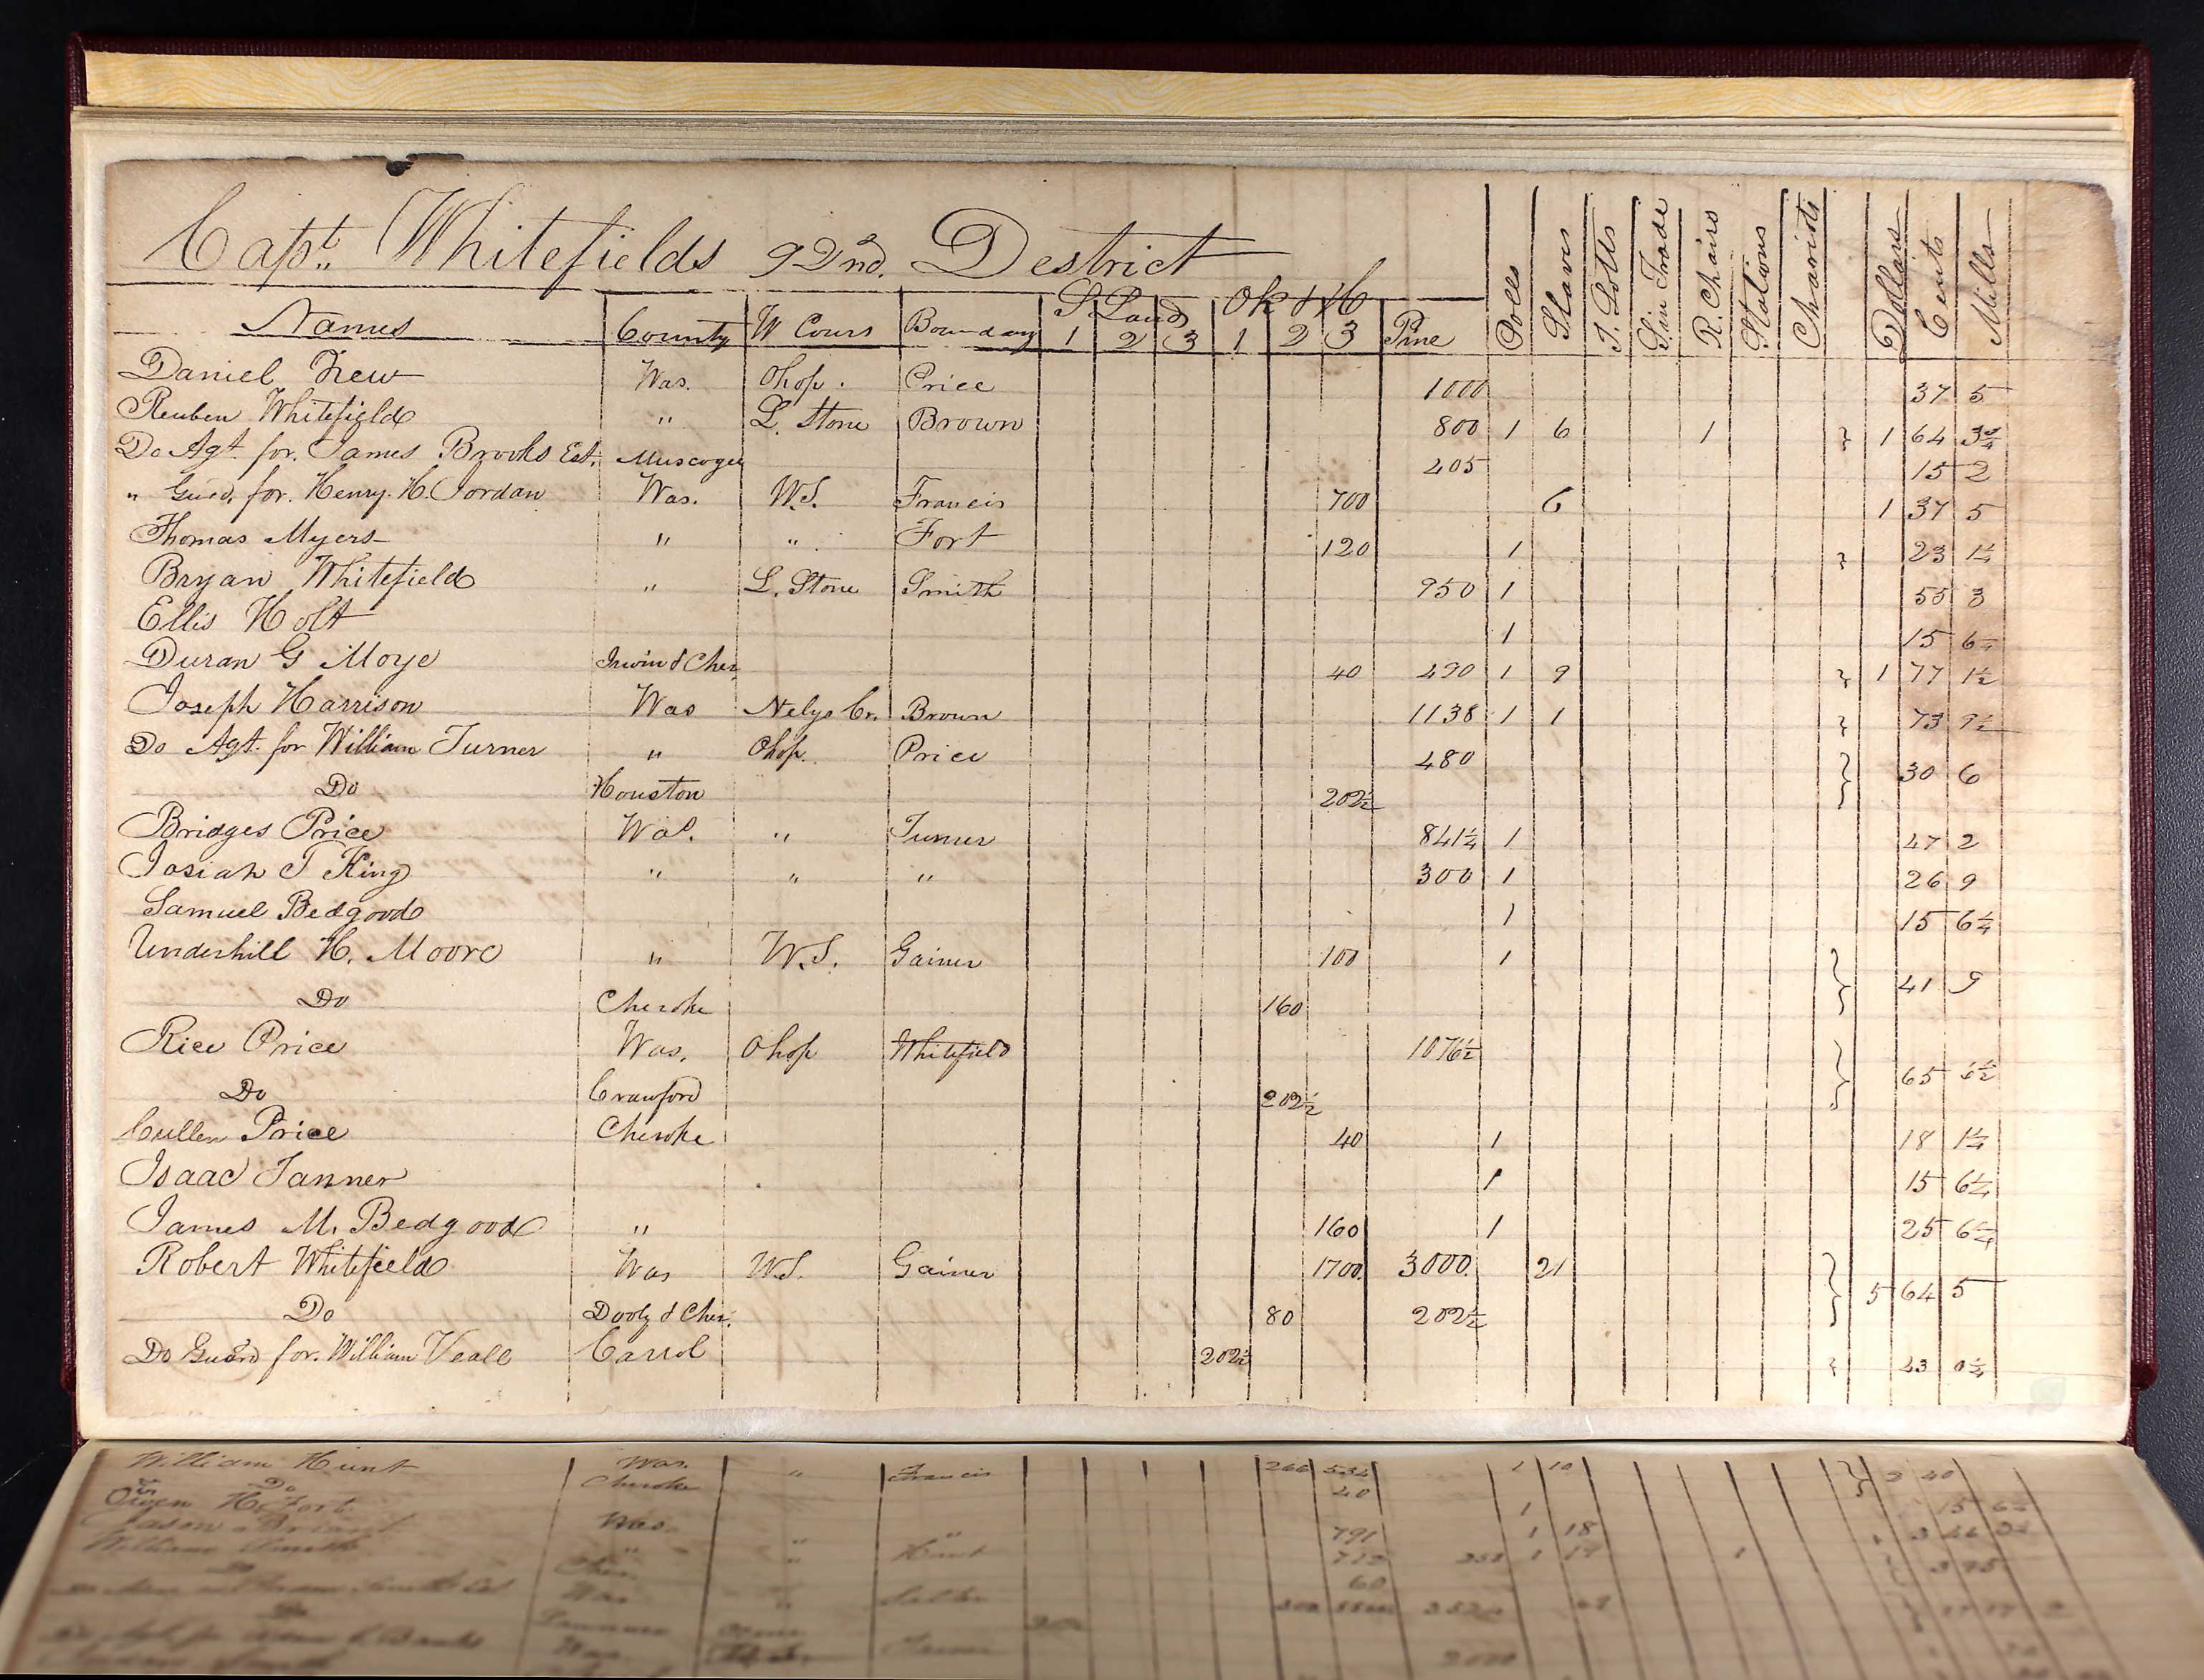 Capt. Whitefields 92nd. Destrict
Names County W Cours Boundary S Land 1 2 3 Ok & H 1 2 3 Pine Polls Slaves T. Lotts Sin Trade R. Chairs Stalions Chariots Dollars Cents Mills
Daniel New Was. Ohop. Price 1000 37 5
Reuben Whitefield " L. Stone Brown 800 1 6 1 } 1 64 3¾
Do Agt. for. James Brooks Est. Muscogee 405 15 2
" Gued. for. Henry. H. Jordan Was. W.S. Francis 700 6 1 37 5
Thomas Myers " " Fort 120 1 } 23 1¼
Bryan Whitefield " L. Stone Smith 950 1 55 3
Ellis Holt 1 15 6¼
Duran G Moye Irwin & Cher. 40 490 1 9 } 1 77 1½
Joseph Harrison Was Nelys Cr. Brown 1138 1 1 } 73 9½
Do Agt. for William Turner " Ohop. Price 480 } 30 6
Do Houston 202½
Bridges Price Was. " Turner 841¼ 1 47 2
Josiah T King " " " 300 1 26 9
Samuel Bedgood 1 15 6¼
Underhill H. Moore " W.S. Gainer 100 1 } 41 9
Do Cheroke 160
Rice Price Was. Ohop Whitefield 1076½ } 65 6½
Do Crawford 202½
Cullen Price Cheroke 40 1 18 1¼
Isaac Tanner 1 15 6¼
James M. Bedgood " 160 1 25 6¼
Robert Whitefield Was W.S. Gainer 1700 3000 21 } 5 64 5
Do Dooly & Cher. 80 202½
Do Guard for. William Veall Carrol 202½ } 43 0¼
William Hunt Was. " Francis 266 534 1 10 } 2 40
Do Cheroke 40
Owen H. Fort 1 15 6¼
Jason Briant Was. " " 791 1 18
William Smith " " Hunt 1
Do Cher. 60
Was
Do
Was